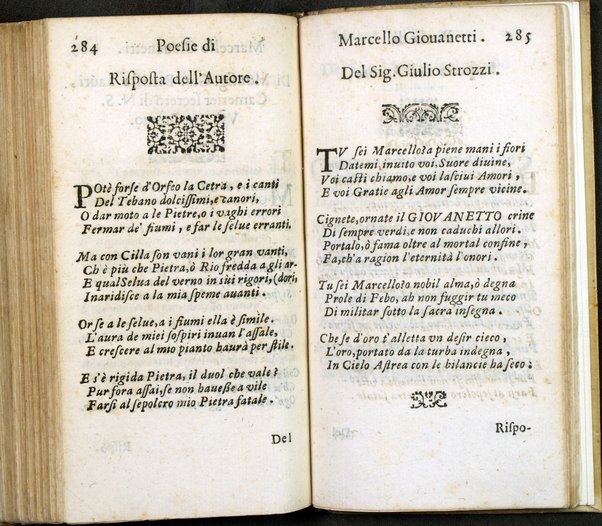 284 Poesie di
Risposta dell'Autore.
POtè forse d'Orfeo la Cetra, e i canti
Del Tebano dolcissimi, e canori,
O dar moto a le Pietre, o i vaghi errori
Fermar de' fiumi, e far le selue erranti.
Ma con Cilla son vani i lor gran vanti,
Ch'è più che Pietra, ò Rio fredda a gli ar-
E qual Selua del verno in sùi rigori, (dori,
Inaridisce a la mia speme auanti.
Or se a le selue, a i fiumi ella è simile.
L'aura de miei sospiri inuan l'assale,
E crescere al mio pianto haurà per stile.
E s'è rigida Pietra, il duol che vale?
Pur fora assai, se non hauesse a vile
Farsi al sepolcro mio Pietra fatale.
Del
Marcello Giouanetti. 285
Del Sig. Giulio Strozzi.
TV sei Marcello? a piene mani i fiori
Datemi, inuito voi, Suore diuine,
Voi casti chiamo, e voi lasciui Amori,
E voi Gratie agli Amor sempre vicine.
Cignete, ornate il GIOVANETTO crine
Di sempre verdi, e non caduchi allori.
Portalo, ò fama oltre al mortal confine,
Fa, ch'a ragion l'eternità l'onori.
Tu sei Marcello? ò nobil alma, ò degna
Prole di Febo, ah non fuggir tu meco
Di militar sotto la sacra insegna.
Che se d'oro t'alletta vn desir cieco,
L'oro, portato da la turba indegna,
In Cielo Astrea con le bilancie ha seco:
Rispo-